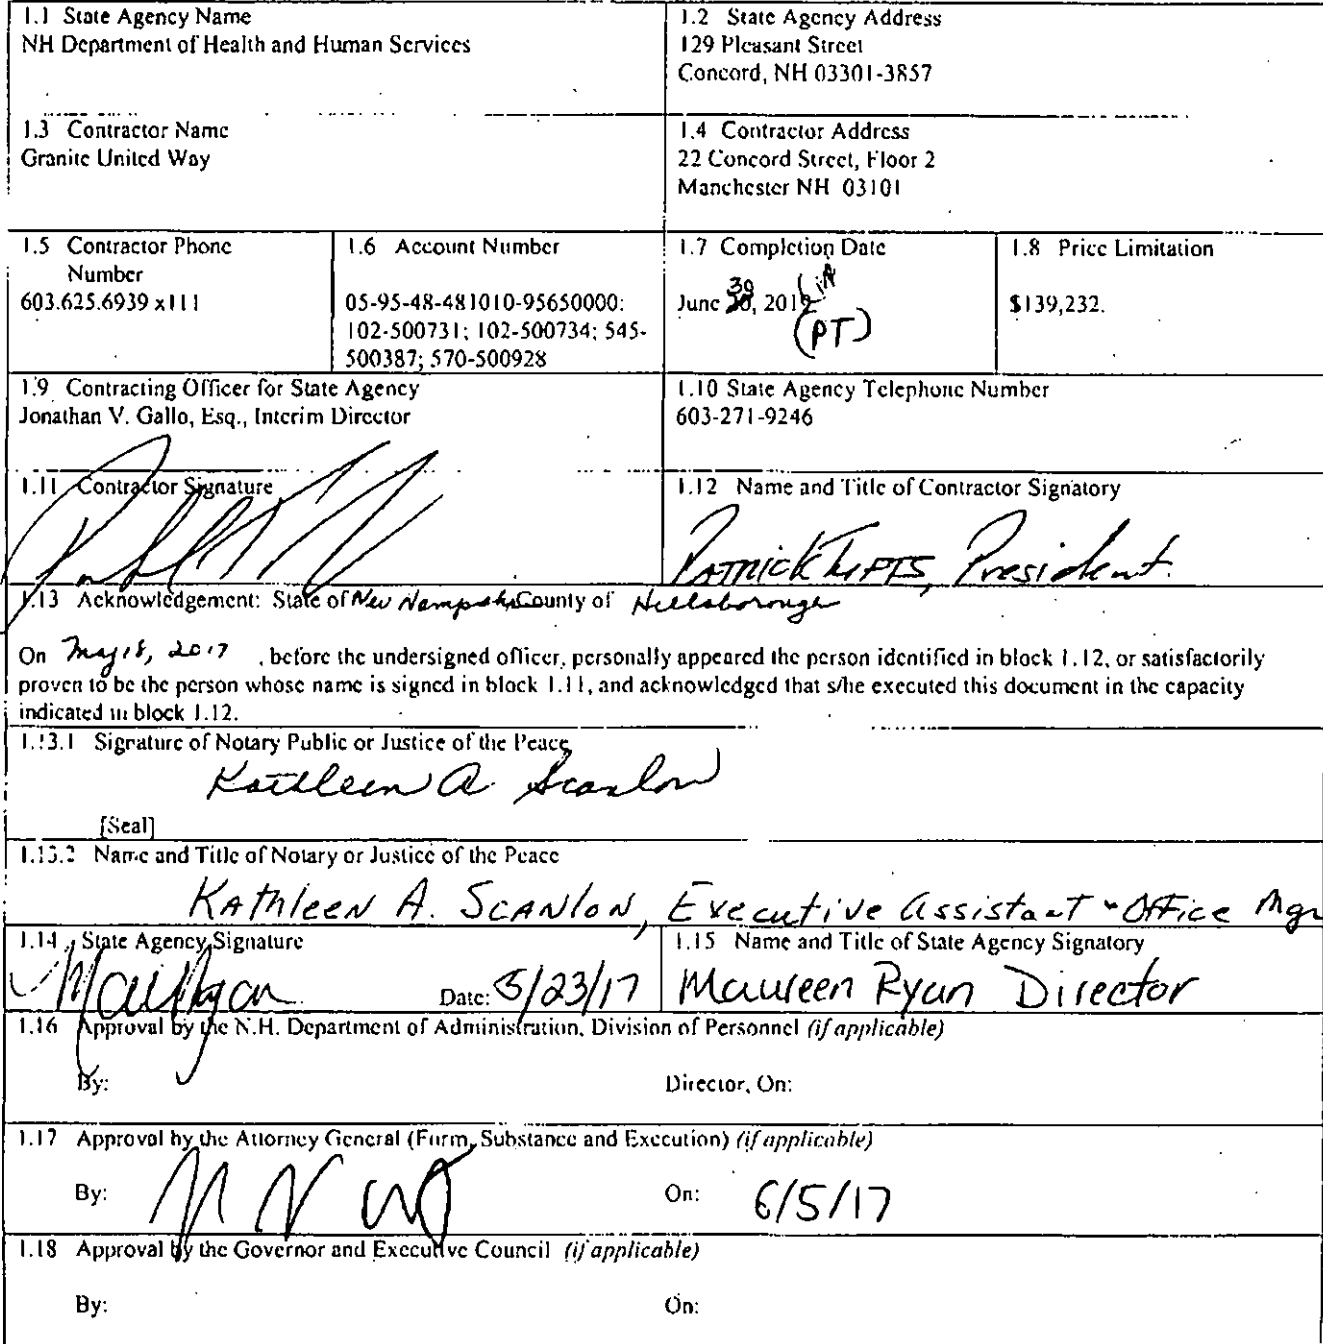 1.1 State Agency Name
NH Department of Health and Human Services
1.2 State Agency Address
129 Pleasant Street
Concord, NH 03301-3857
1.3 Contractor Name
Granite United Way
1.4 Contractor Address
22 Concord Street, Floor 2
Manchester NH 03101
1.5 Contractor Phone
Number
603.625.6939 x111
1.6 Account Number
05-95-48-481010-95650000:
102-500731; 102-500734; 545-
500387; 570-500928
1.7 Completion Date
30
June , 2019
(PT)
1.8 Price Limitation
$139,232.
1.9 Contracting Officer for State Agency
Jonathan V. Gallo, Esq., Interim Director
1.10 State Agency Telephone Number
603-271-9246
1.11 Contractor Signature
1.12 Name and Title of Contractor Signatory
Patrick Tufts, President
1.13 Acknowledgement: State of New Hampshire County of Hillsborough
On May 18, 2017 , before the undersigned officer, personally appeared the person identified in block 1.12, or satisfactorily
proven to be the person whose name is signed in block 1.11, and acknowledged that s/he executed this document in the capacity
indicated in block 1.12.
1.13.1 Signature of Notary Public or Justice of the Peace
Kathleen A. Scanlon
[Seal]
1.13.2 Name and Title of Notary or Justice of the Peace
Kathleen A. Scanlon, Executive Assistant & Office Mgr
1.14 State Agency Signature
Date: 5/23/17
1.15 Name and Title of State Agency Signatory
Maureen Ryan Director
1.16 Approval by the N.H. Department of Administration, Division of Personnel (if applicable)
By: Director, On:
1.17 Approval by the Attorney General (Form, Substance and Execution) (if applicable)
By: On: 6/5/17
1.18 Approval by the Governor and Executive Council (if applicable)
By: On: